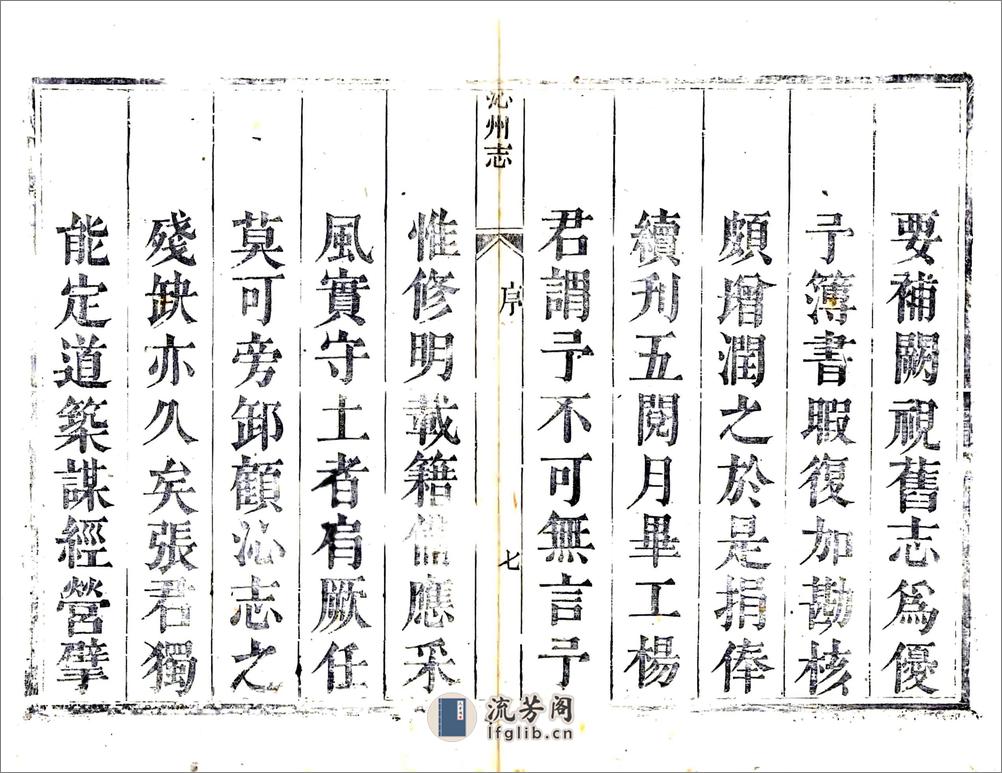 要補闕視舊志爲優
予簿書暇復加勘核
頗增潤之於是捐俸
續刋五閱月畢工楊
君謂予不可無言予
沁州志
序
七
惟修明載籍備應采
風實守土者肩厥任
莫可旁卸顧沁志之
殘缺亦久矣張君獨
能定道築謀經營擘
流芳阁
lfglib.cn